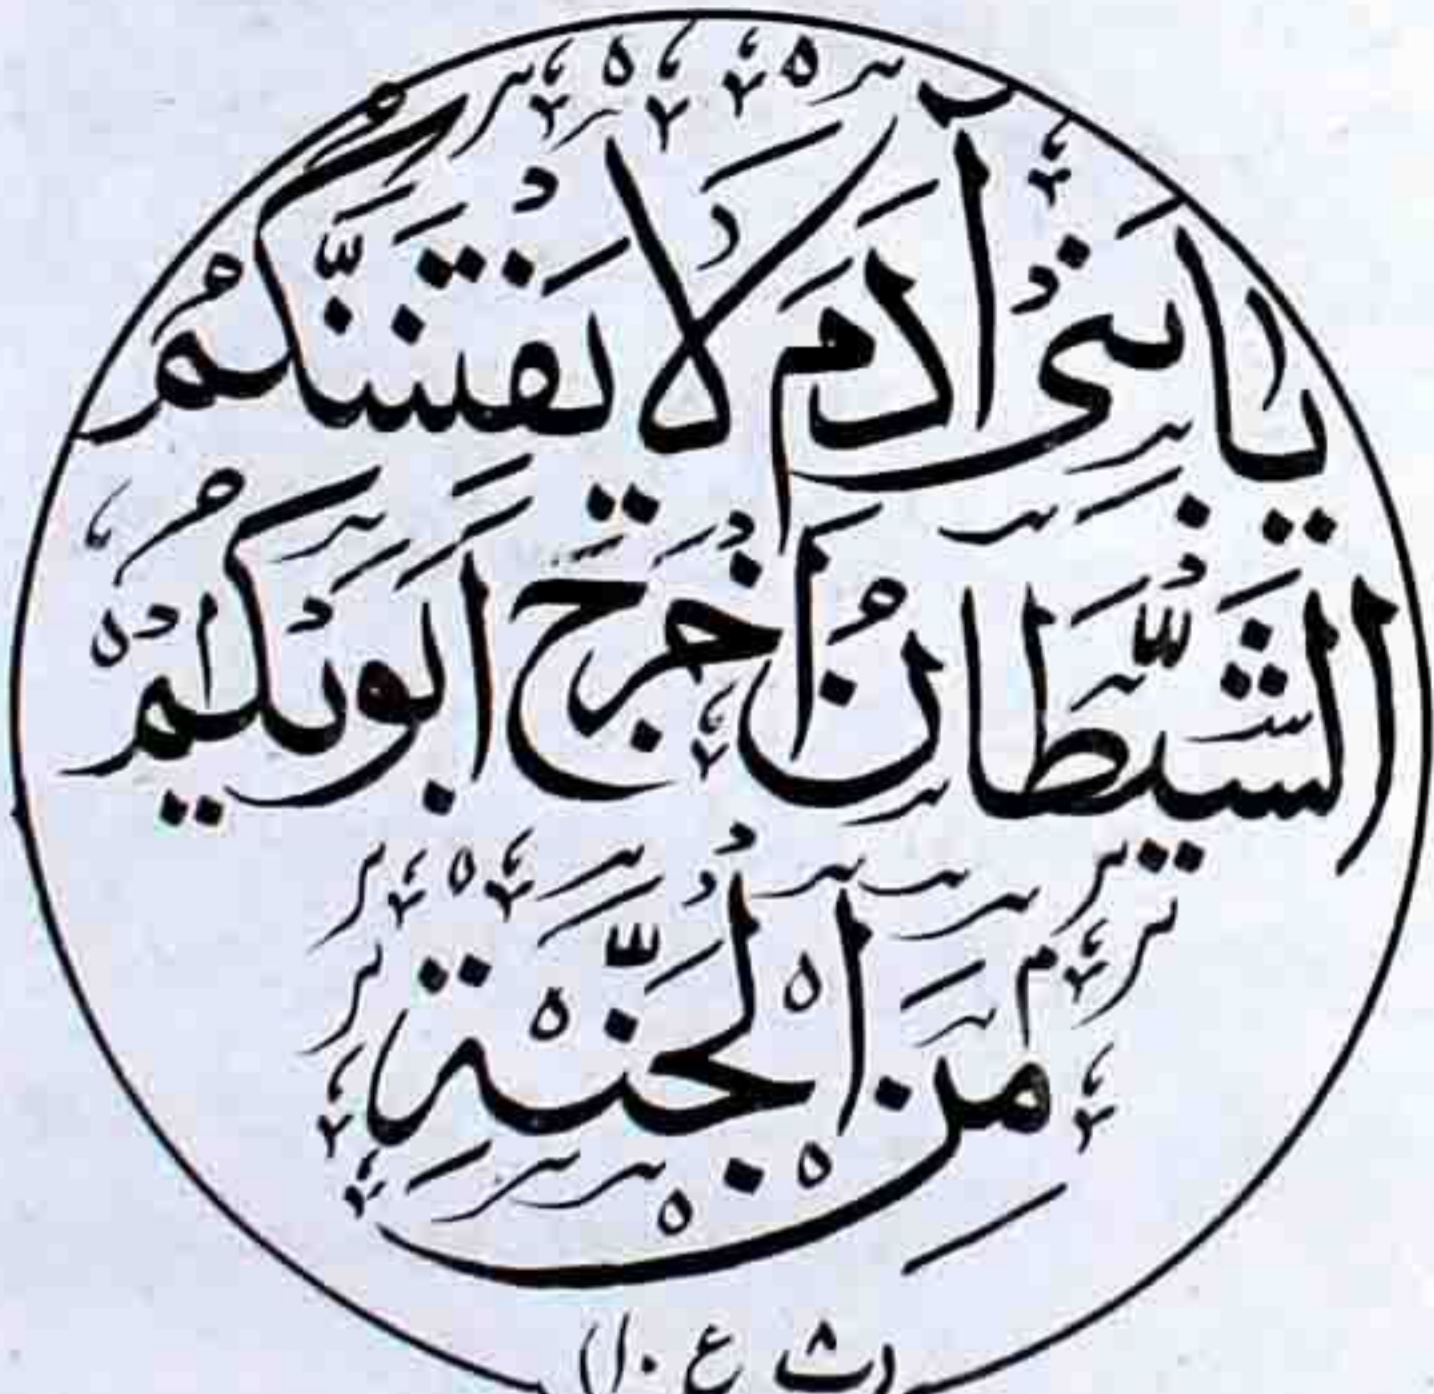 يَا بَنِيْ آدَمَ لَا يَفْتِنَنَّكُمُ
الشَّيْطَانُ اَخْرَجَ اَبَوَيْكُمْ
مِنَ الْجَنَّةِ
(پ ۸ ع ۱۰)